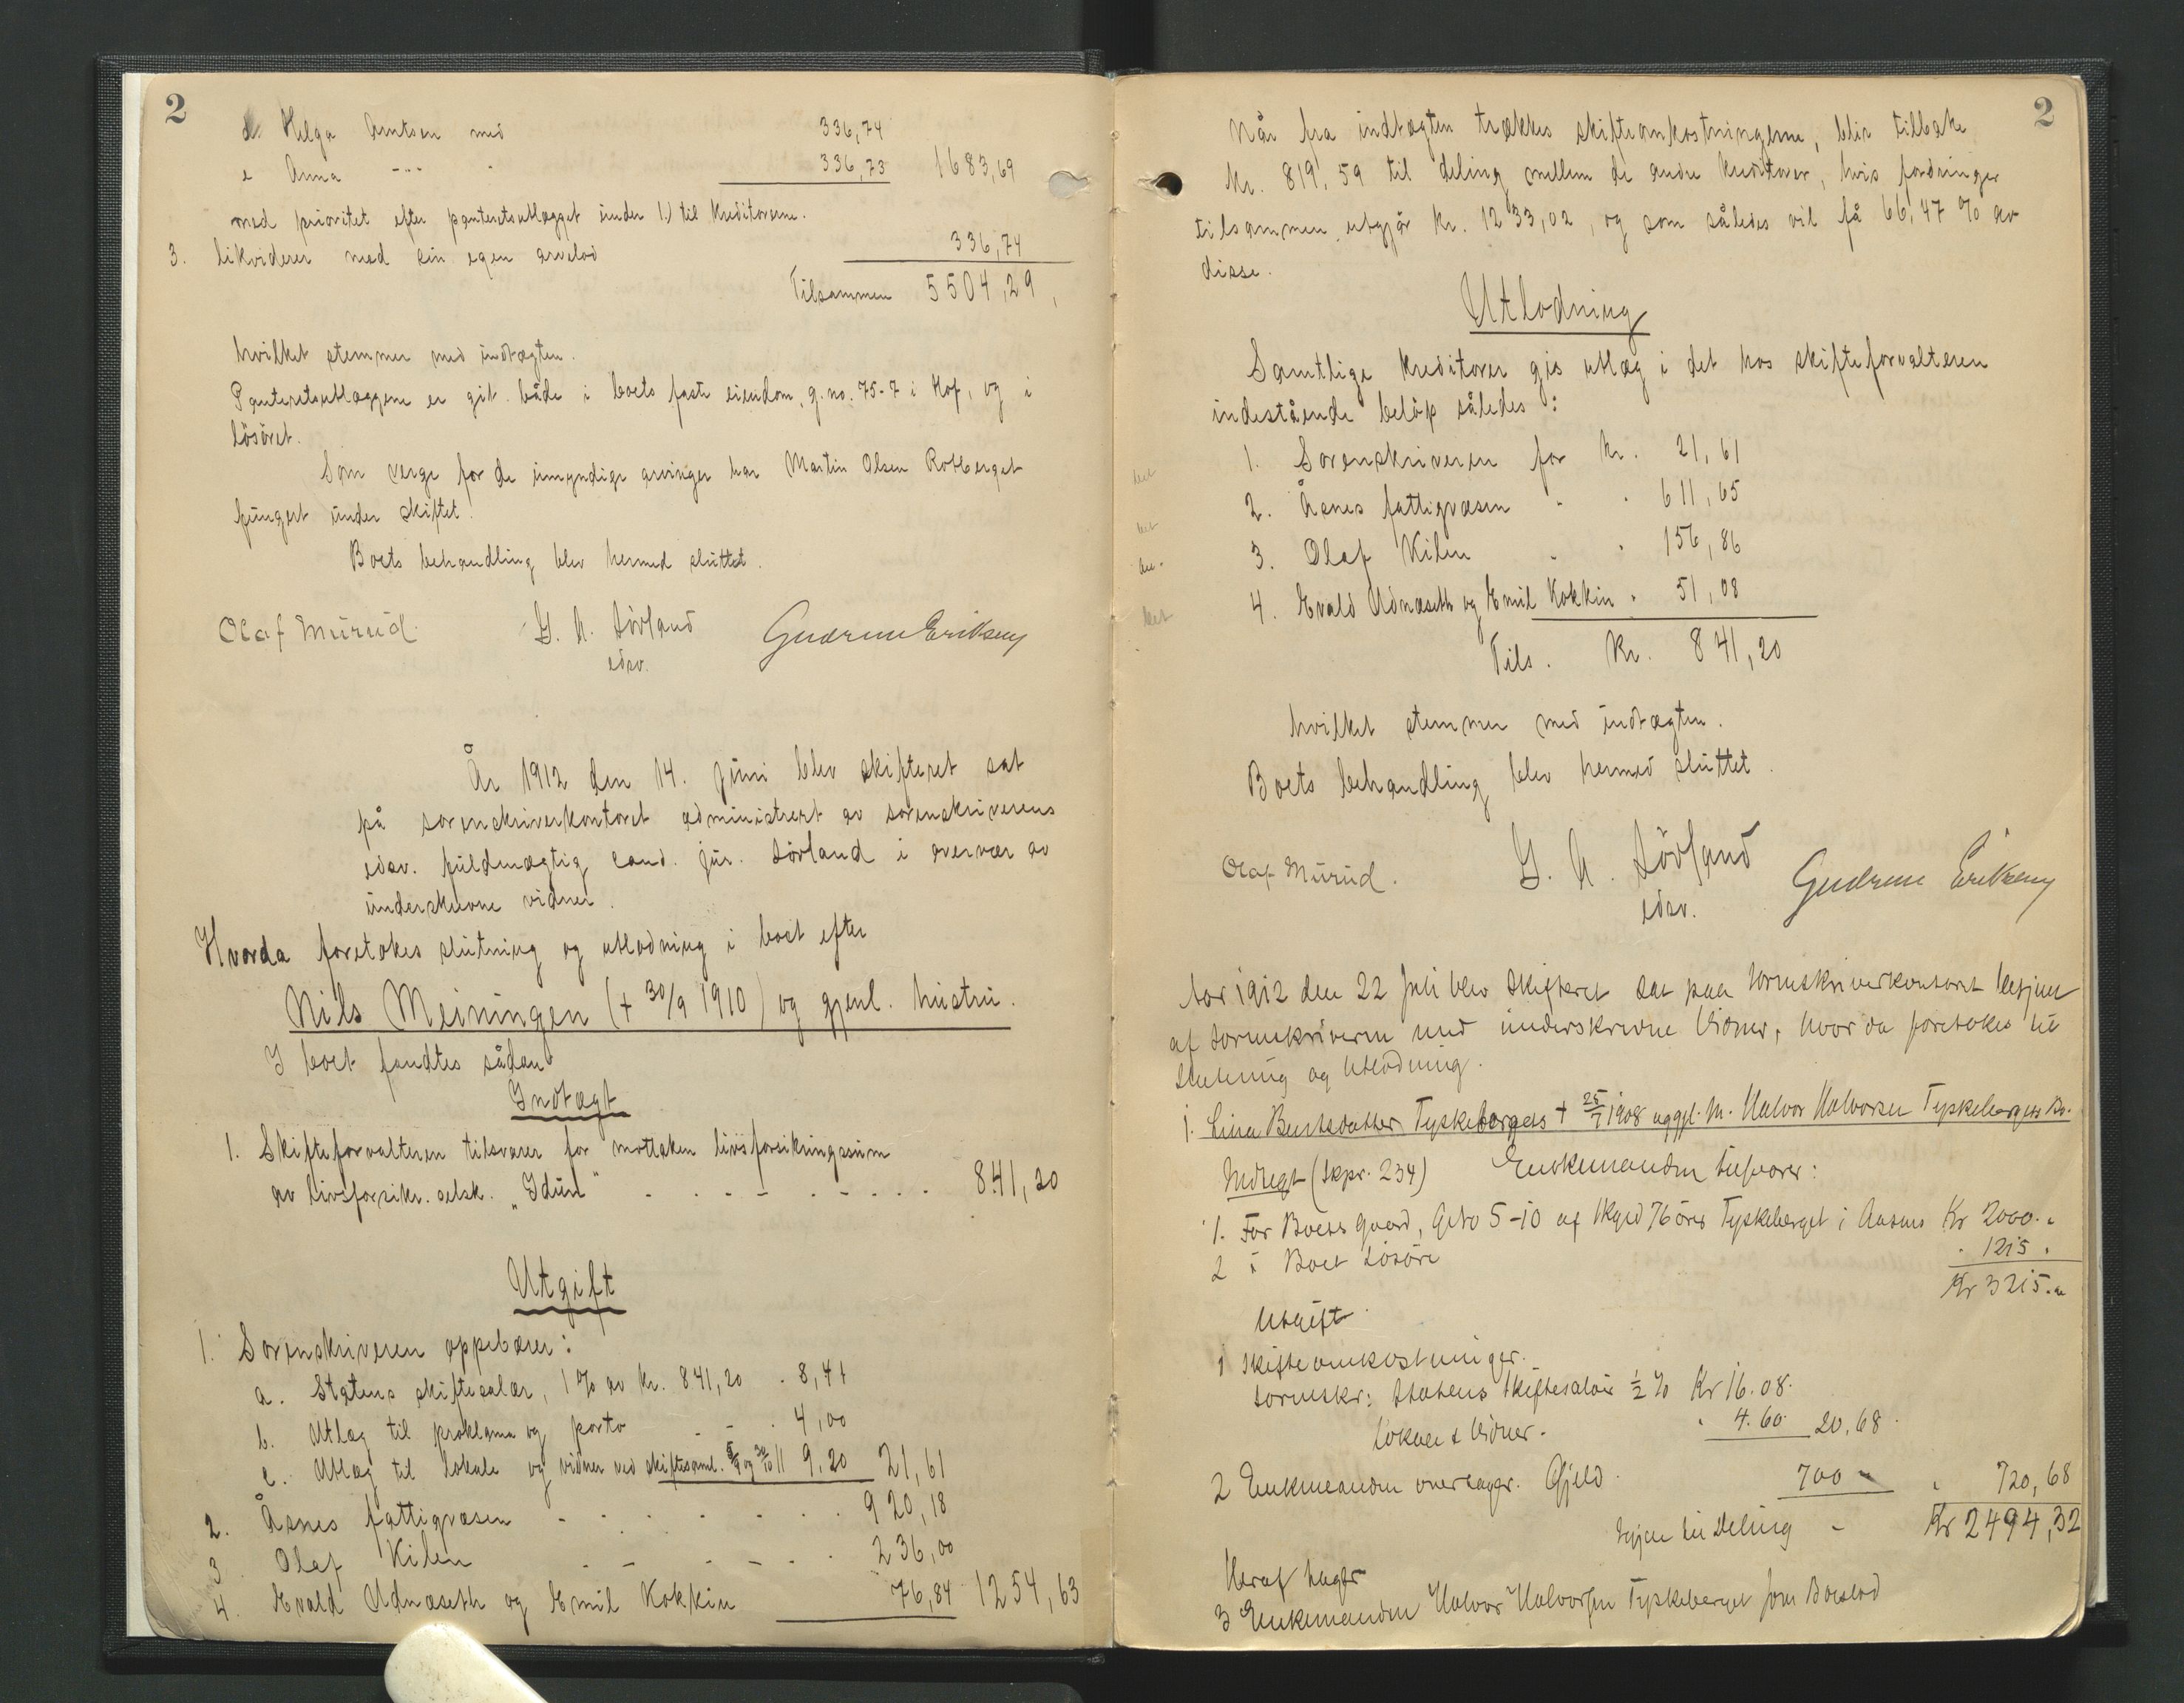 2
d Helga Arntsen med 336,74
e Anna -"- " 336,73 1683,69
med prioritet efter panteretsutlægget under 1) til kreditorerne.
3. likviderer med sin egen arvelod 336,74
Tilsammen 5504,29,
hvilket stemmer med indtægten.
Panteretsutlæggene er git både i boets faste eiendom, g.no. 75-7 i Hof, og i
lösöret.
Som verge for de umyndige arvinger har Martin Olsen Rotberget
fungert under skiftet.
Boets behandling blev hermed sluttet.
Olaf Murud. G. A. Lövland Gudrun Eriksen
edsv.
År 1912 den 14. juni blev skifteret sat
på sorenskriverkontoret administrert av sorenskriverens
edsv. fuldmægtig cand. jur. Lövland i overvær av
underskrevne vidner.
Hvorda foretokes slutning og utlodning i boet efter
Nils Meiningen (+ 30/9 1910) og gjenl. hustru.
I boet fandtes sådan
Indtægt
1. Skifteforvalteren tilsvarer for mottaken livsforsikringssum
av livsforsikr. selsk. "Idun" - - - - - - - 841,20
Utgift
1. Sorenskriveren oppebærer:
a. Statens skiftesalær, 1 % av kr. 841,20 . 8,41
b. Utlæg til proklama og porto - - . 4,00
c. Utlæg til lokale og vidner ved skiftesaml. 5/9 og 30/10 11 9,20 21,61
2. Åsnes fattigvæsen - - - - - - - 920,18
3. Olaf Kilen - - - - - . 236,00
4. Evald Udnæseth og Emil Kokkin 76,84 1254,63
2
Når fra indtægten trækkes skifteomkostningerne, blir tilbake
kr. 819,59 til deling mellem de andre kreditorer, hvis fordringer
tilsammen utgjör kr. 1233,02, og som således vil få 66,47 % av
disse.
Utlodning
Samtlige kreditorer gis utlæg i det hos skifteforvalteren
indestående belöp således:
1. Sorenskriveren for kr. 21,61
2. Åsnes fattigvæsen " " 611,65
3. Olaf Kilen " " 156,86
4. Evald Udnæseth og Emil Kokkin " 51,08
Tils. Kr. 841,20
hvilket stemmer med indtægten.
Boets behandling blev hermed sluttet.
Olaf Murud. G. A. Lövland Gudrun Eriksen
edsv.
Aar 1912 den 22 Juli blev Skifteret sat paa Sorenskriverkontoret betjent
af Sorenskriveren med underskrevne Vidner, hvor da foretokes til
Slutning og Utlodning.
1. Lina Berntsdatter Tyskeberget + 25/7 1908 og gjl. M. Halvor Halvorsen Tyskebergets Bo.
Indtægt (Skpr. 234) Enkemanden tilsvarer:
1. For Boets Gaard, GNo 5-10 af Skyld 76 öre Tyskeberget i Aasnes Kr 2000. "
2 i Boet Lösöre " 1215 "
Kr 3215. "
Utgift
1 Skifteomkostninger.
Sorenskr: Statens Skiftesalær ½ % Kr 16.08.
Lokale & Vidner. " 4.60. 20,68.
2 Enkemanden overtager Gjeld. 700 " " 720,68
Igjen til Deling - Kr 2494,32
Heraf tager
3 Enkemanden Halvor Halvorsen Tyskeberget som Boeslod